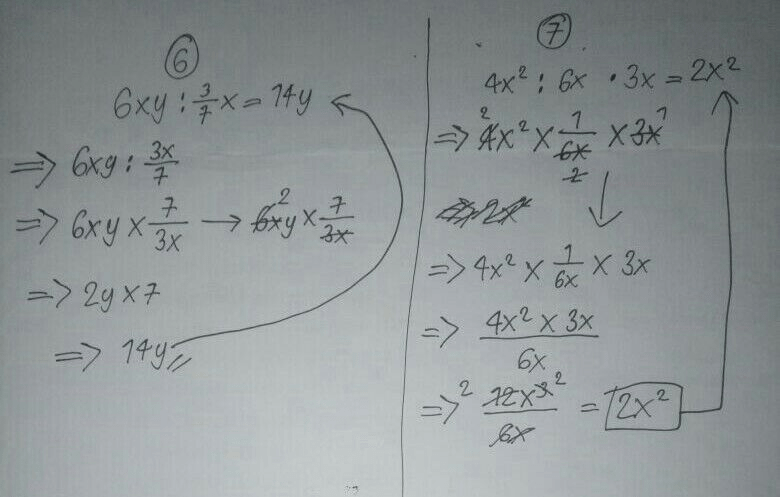 6
6xy : 3/7 x = 14y
=> 6xy : 3x/7
=> 6xy × 7/3x → 6xy 2 × 7/3x
=> 2y × 7
=> 14y
7
4x² : 6x · 3x = 2x²
=> 2 4x² × 1/6x 2 × 3x 1
=> 4x² × 1/6x × 3x
=> 4x² × 3x / 6x
=> 2 12x³ 2 / 6x = 2x²